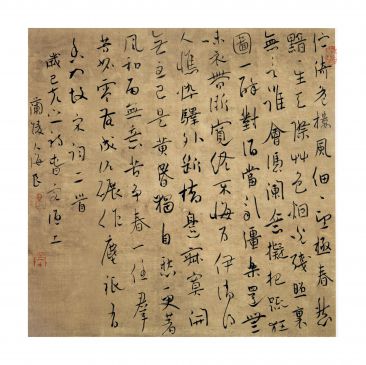 佇倚危樓風細細望極春愁
黯黯生天際草色烟光殘照裏
無言誰會憑闌意擬把疏狂
圖一醉對酒當歌彊樂還無
味衣帶漸寬終不悔為伊消得
人憔悴驛外斷橋邊寂寞開
無主已是黃昏獨自愁更著
風和雨無意苦爭春一任羣
芳妒零落成泥碾作塵祇有
香如故宋詞二首
歲己亥
蘭陵